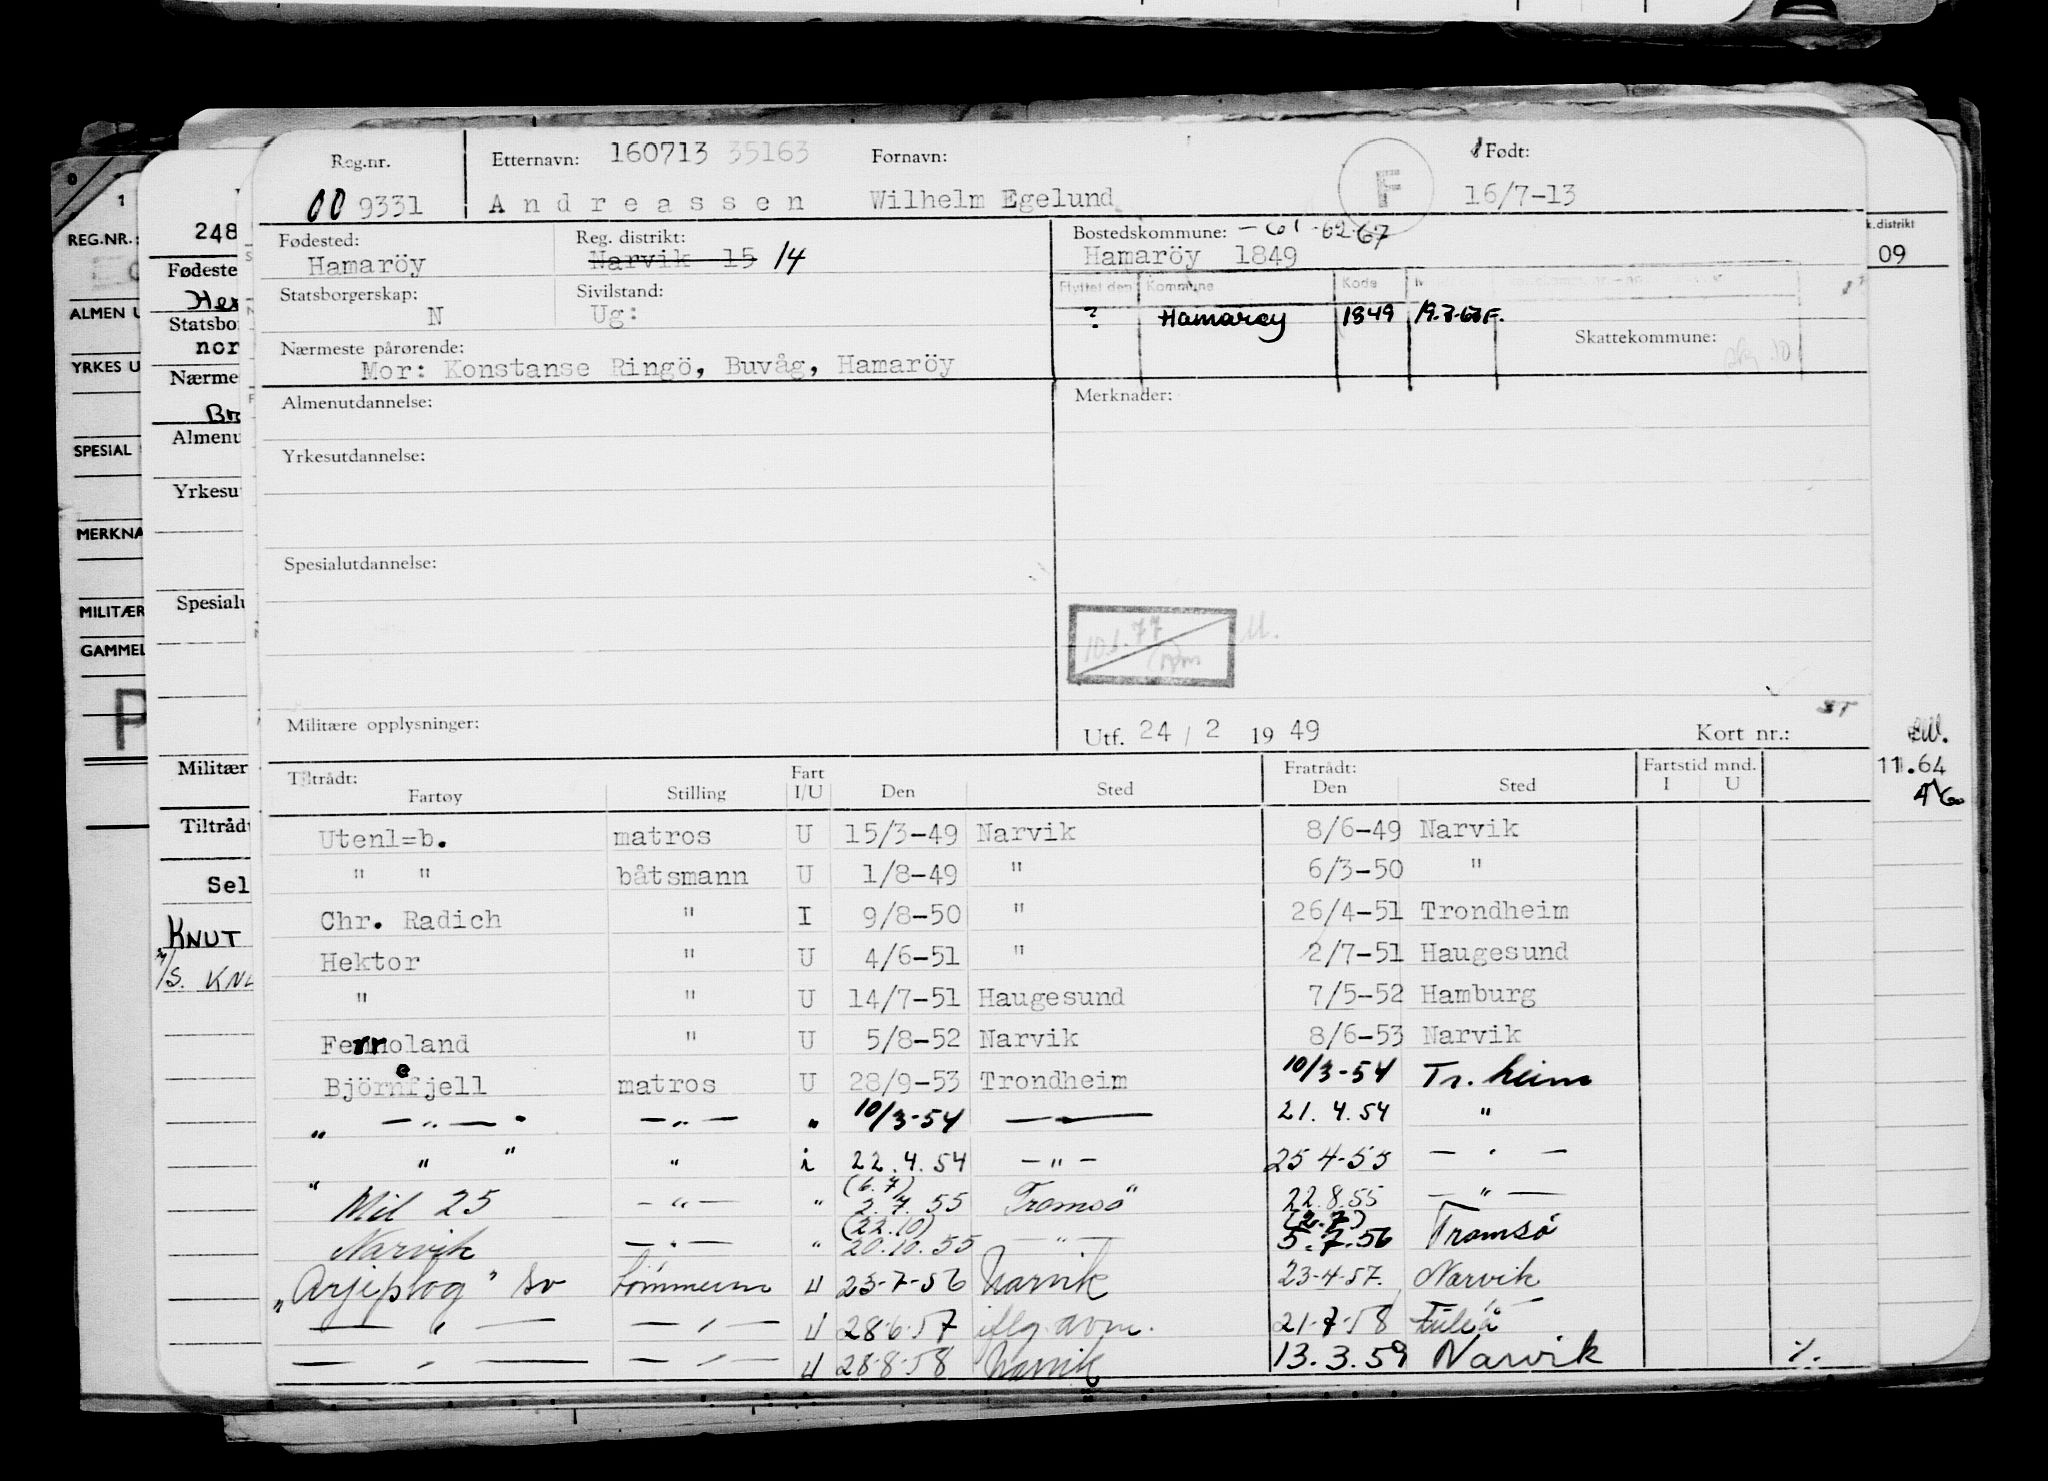 Reg.nr. Etternavn: 160713 35163 Fornavn: F Født:
00 9331 Andreassen Wilhelm Egelund 16/7-13
Fødested: Reg. distrikt: Bostedskommune: - 61 -62-67
Hamaröy Narvik 15 14 Hamaröy 1849
Statsborgerskap: Sivilstand: Flyttet den Kommune Kode
N Ug: ? Hamarøy 1849
Skattekommune:
Nærmeste pårørende:
Mor: Konstanse Ringö, Buvåg, Hamaröy
Almenutdannelse: Merknader:
Yrkesutdannelse:
Spesialutdannelse:
10.1.77
Militære opplysninger: Utf. 24 / 2 19 49 Kort nr.:
Tiltrådt: Fart Fratrådt: Fartstid mnd.
Fartøy Stilling I/U Den Sted Den Sted I U
Utenl=b. matros U 15/3-49 Narvik 8/6-49 Narvik
" " båtsmann U 1/8-49 " 6/3-50 "
Chr. Radich " I 9/8-50 " 26/4-51 Trondheim
Hektor " U 4/6-51 " 2/7-51 Haugesund
" " U 14/7-51 Haugesund 7/5-52 Hamburg
Ferroland " U 5/8-52 Narvik 8/6-53 Narvik
Björnefjell matros U 28/9-53 Trondheim 10/3-54 Tr.heim
" — " — — " — " 10/3-54 — 21.4.54 "
" " " " i 22.4.54 — " — 25-4-55 — " —
(6.7)
Mil 25 — " — " 2.7.55 Tromsö 22.8.55 — " —
(22.10) (2.7)
Narvik — " — " 20.10.55 — " — 5.7.56 Tromsö
"Arjeplog" sv tömmerm U 23-7-56 Narvik 23-4-57. Narvik
— " — — " — U 28-6-57 21-7-58
— " — — " — U 28-8-58 Narvik 13.3.59 Narvik %.
REG.NR.:
ALMEN U
YRKES U
SPESIAL
MERKNA
MILITÆR
GAMMEL
P
248
Fødeste
Statsbo
nor
Nærme
Almenu
Yrkesu
Spesialu
Militær
Tiltrådt
Sel
KNUT
M/S. KNU
k.distrikt
09
11.64